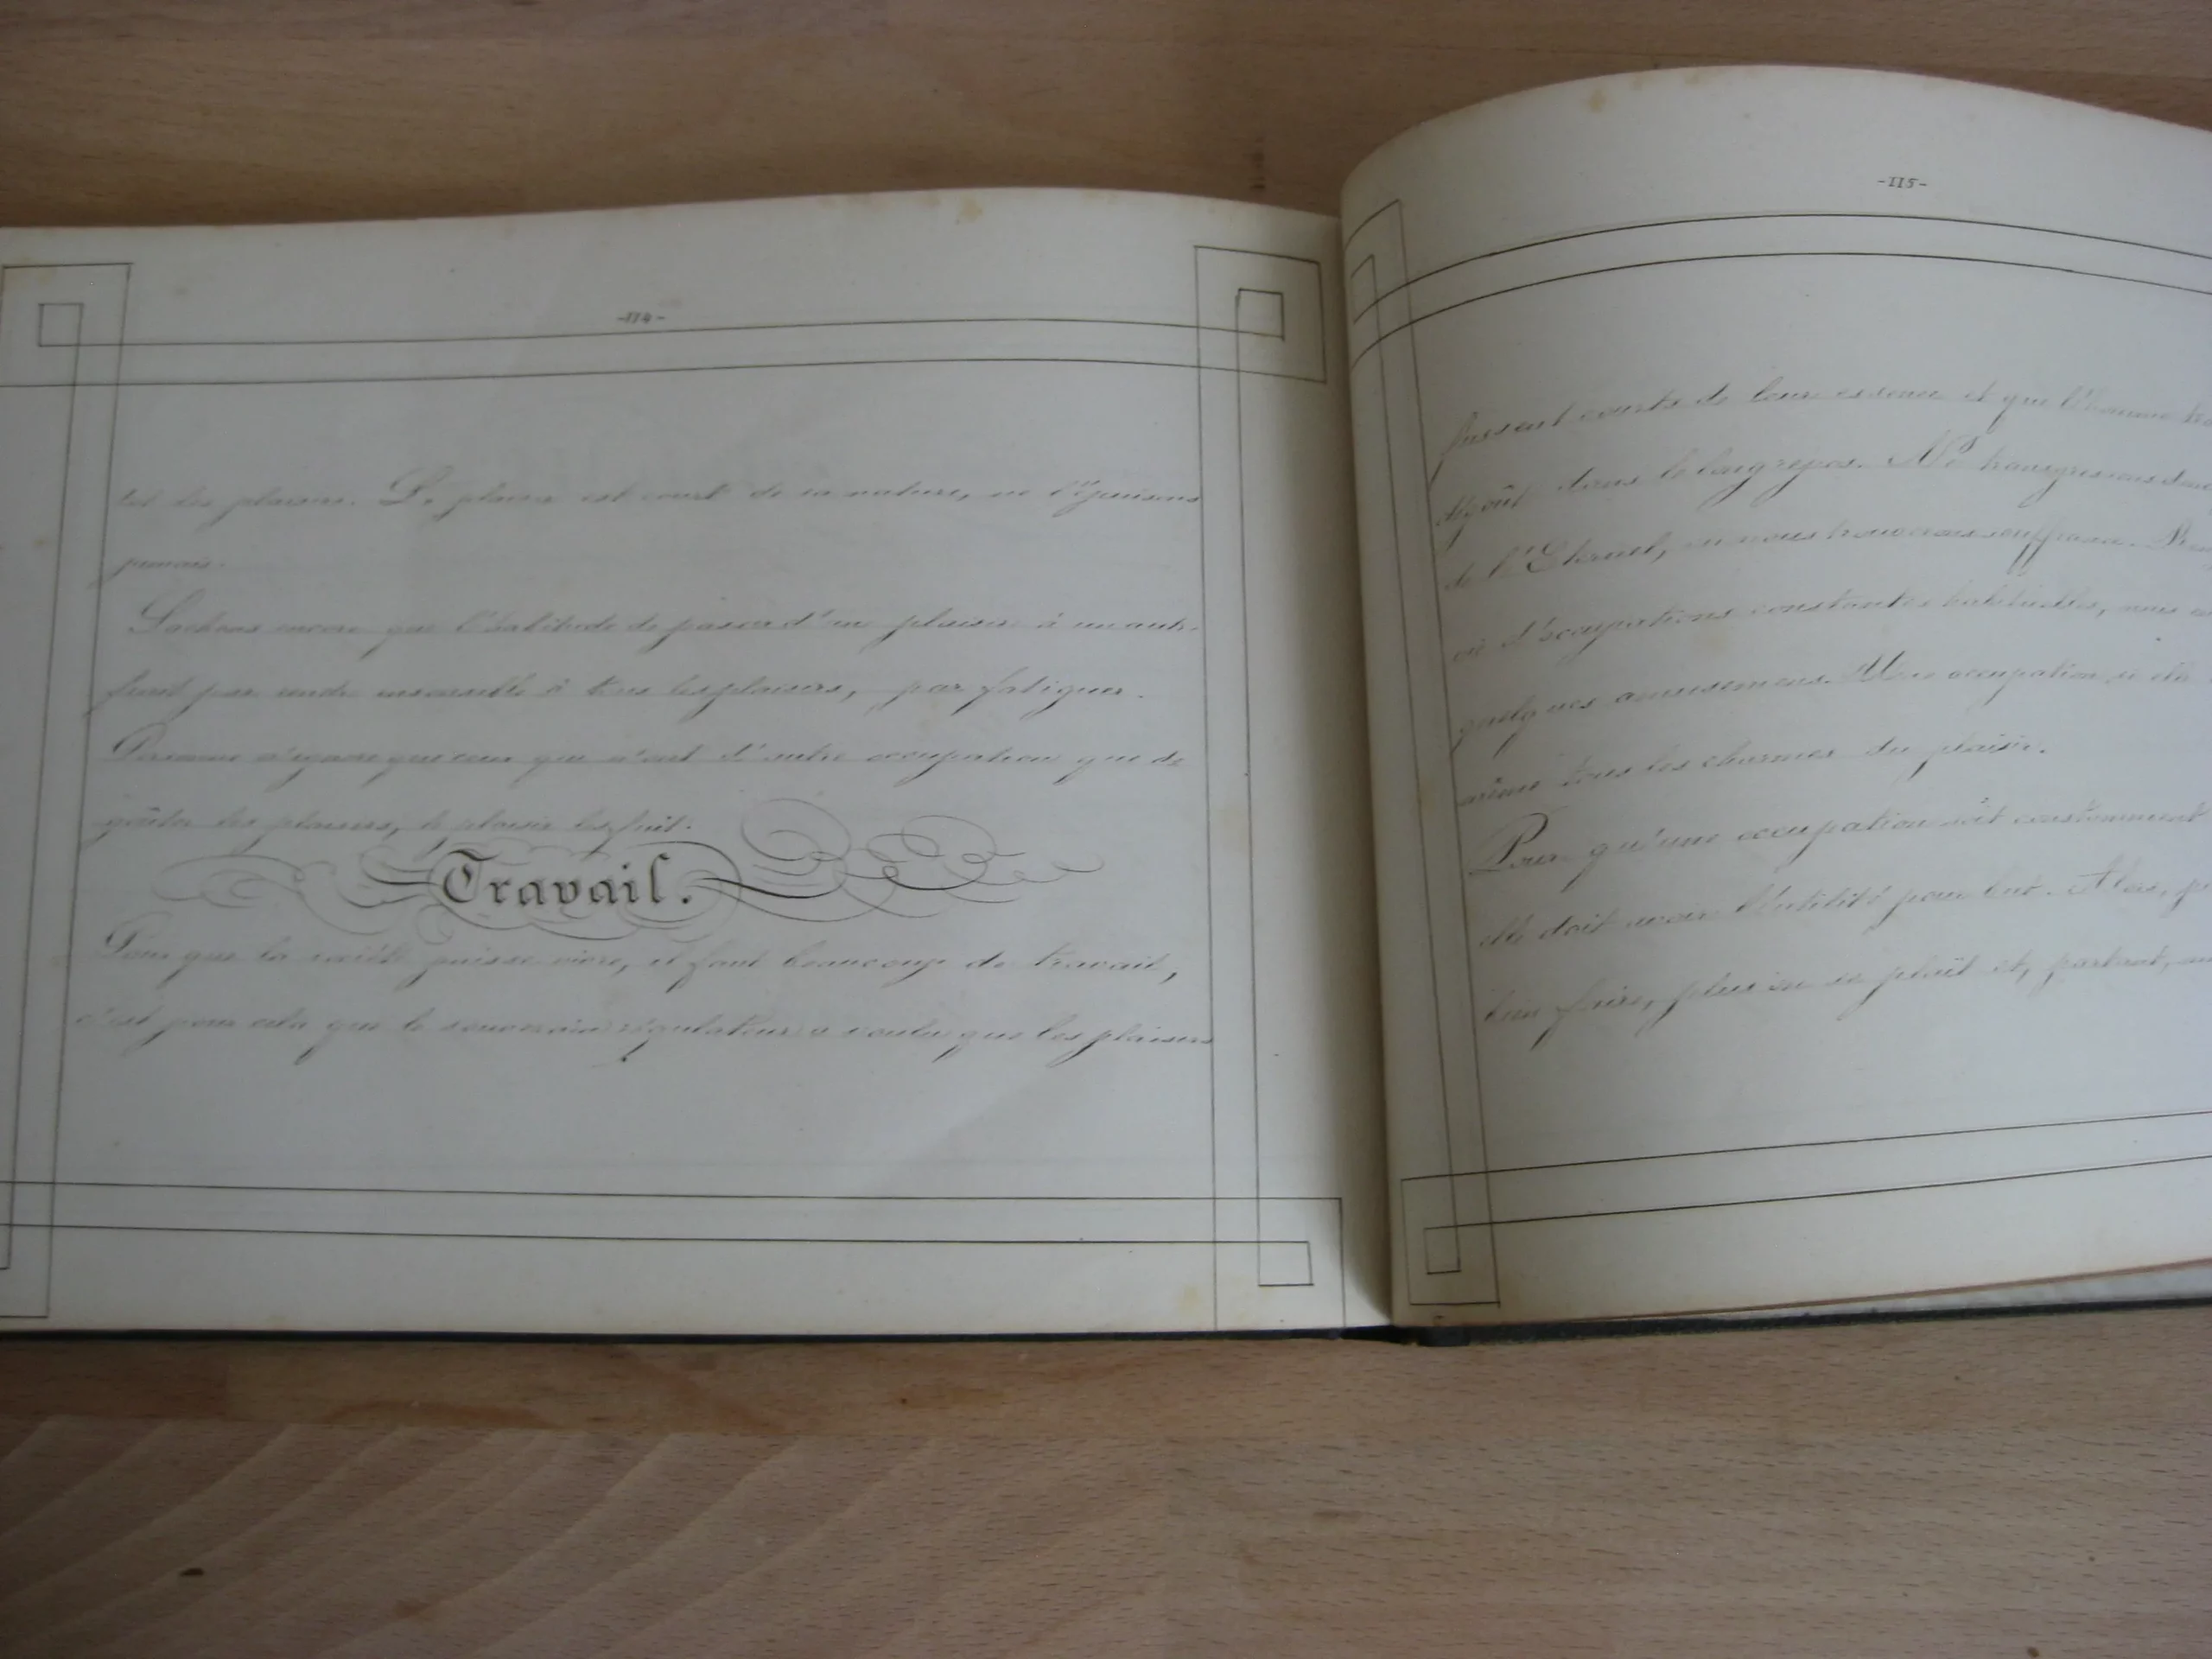 -114-
tes les plaisirs. Le plaisir est court de sa nature, ne l'épuisons
jamais.
Sachons encore que l'habitude de passer d'un plaisir à un autre
finit par rendre insensible à tous les plaisirs, par fatiguer.
Personne n'ignore que ceux qui n'ont d'autre occupation que de
goûter les plaisirs, le plaisir les fuit.
Travail.
Pour que la société puisse vivre, il faut beaucoup de travail,
c'est pour cela que le souverain régulateur a voulu que les plaisirs
-115-
fussent courts de leur essence et que l'homme
dégoût dans le long repos. Ne transgressons
de l'Eternel, ou nous trouverons souffrance.
d'occupations constantes habituelles, nous
quelques amusemens. Une occupation si elle
même tous les charmes du plaisir.
Pour qu'une occupation soit constamment
elle doit avoir l'utilité pour but. Alors,
bien faire, plus on se plaît et, partant,